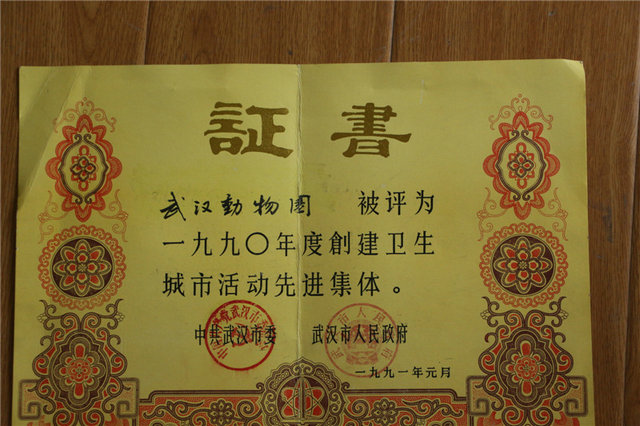 証書
武汉動物園 被评为
一九九〇年度創建卫生
城市活动先进集体。
中共武汉市委 武汉市人民政府
一九九一年元月